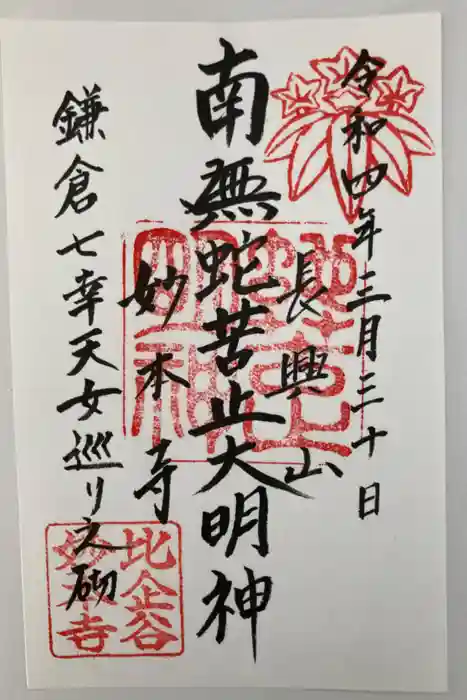 令和四年三月三十日
長興山
南無蛇苦止大明神
妙本寺
鎌倉七幸天女巡り之砌
蛇苦止明神
比企谷
妙本寺